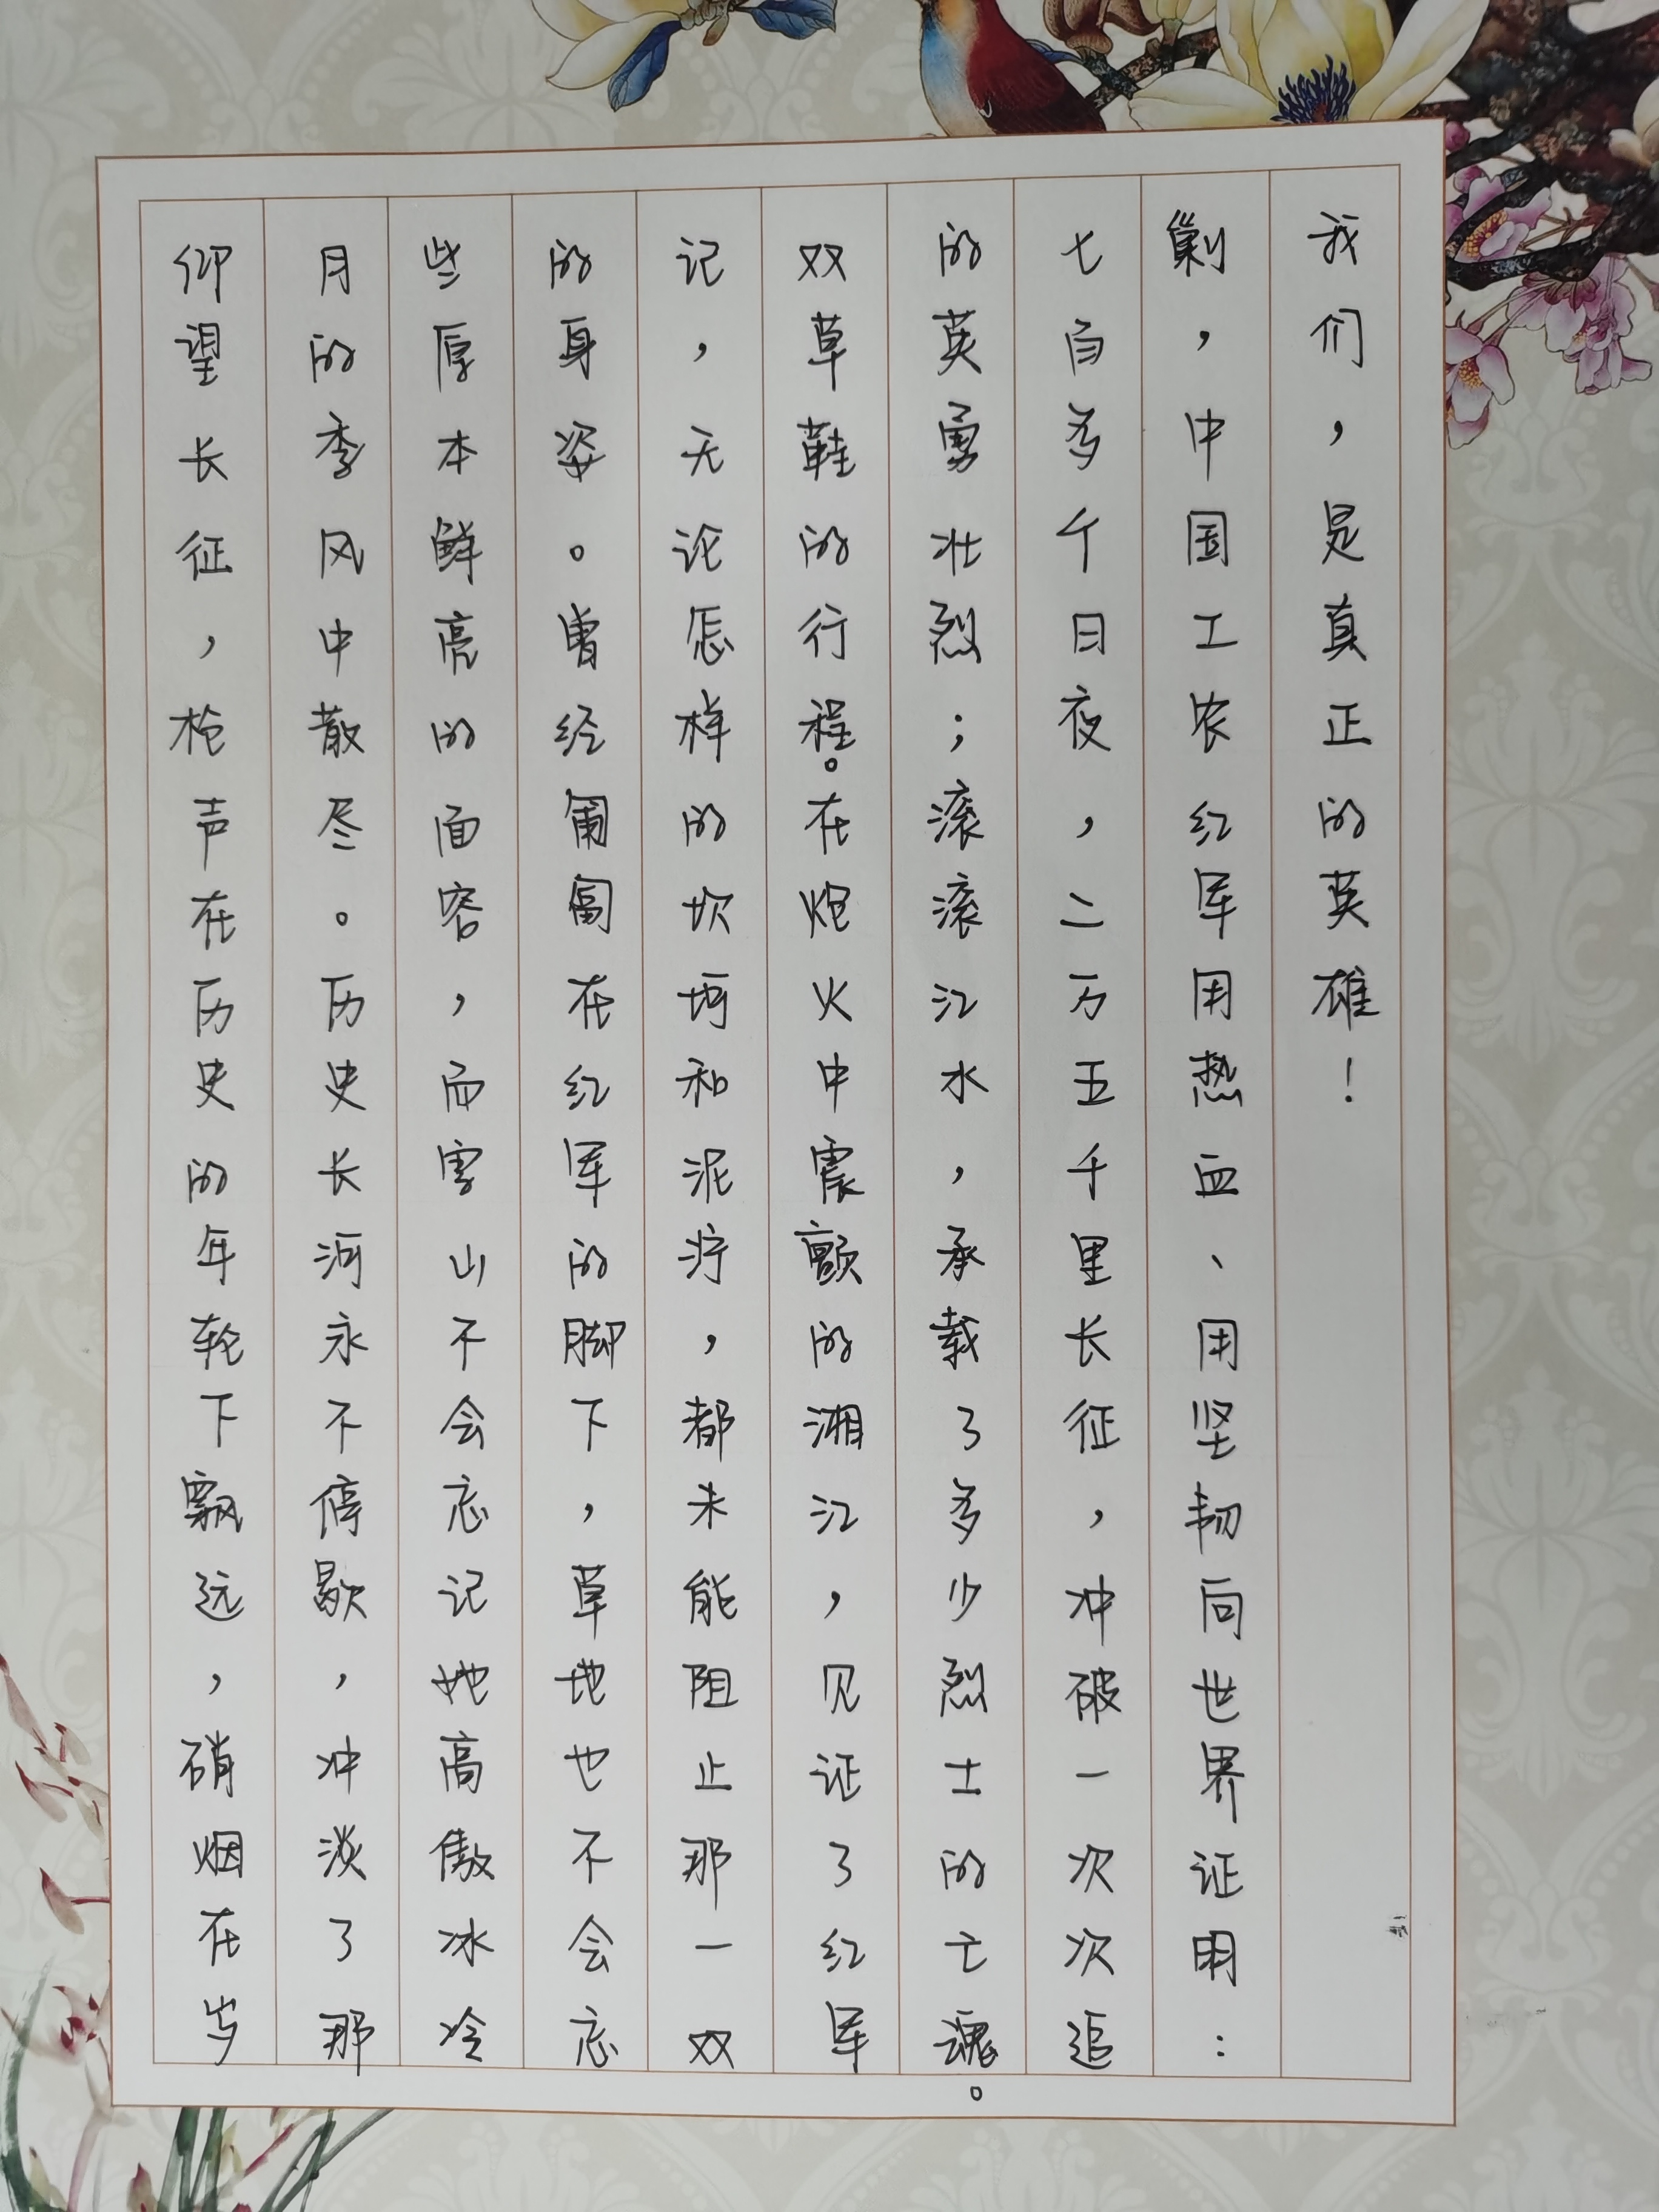 仰望长征，枪声在历史的年轮下飘远，硝烟在岁
月的季风中散尽。历史长河永不停歇，冲淡了那
些厚本鲜亮的面容，而雪山不会忘记她高傲冰冷
的身姿。曾经匍匐在红军的脚下，草地也不会忘
记，无论怎样的坎坷和泥泞，都未能阻止那一双
双草鞋的行程。在炮火中震颤的湘江，见证了红军
的英勇壮烈；滚滚江水，承载了多少烈士的亡魂。
七百多个日夜，二万五千里长征，冲破一次次追
剿，中国工农红军用热血、用坚韧向世界证明：
我们，是真正的英雄！